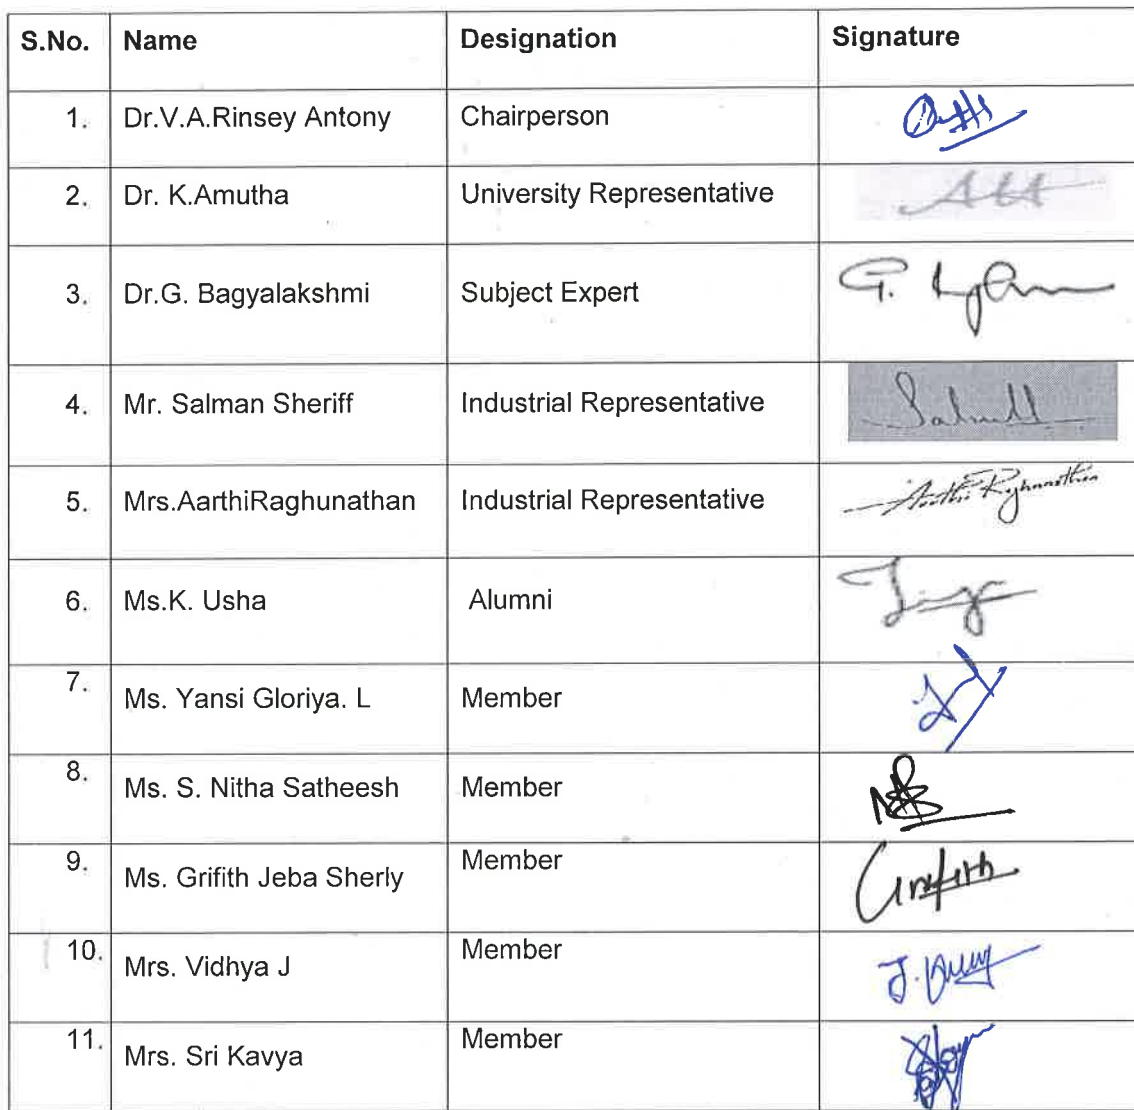 S.No. Name Designation Signature
1. Dr.V.A.Rinsey Antony Chairperson
2. Dr. K.Amutha University Representative
3. Dr.G. Bagyalakshmi Subject Expert G.
4. Mr. Salman Sheriff Industrial Representative
5. Mrs.AarthiRaghunathan Industrial Representative Aarthi Raghunathan
6. Ms.K. Usha Alumni
7. Ms. Yansi Gloriya. L Member
8. Ms. S. Nitha Satheesh Member
9. Ms. Grifith Jeba Sherly Member Grifith
10. Mrs. Vidhya J Member J.
11. Mrs. Sri Kavya Member